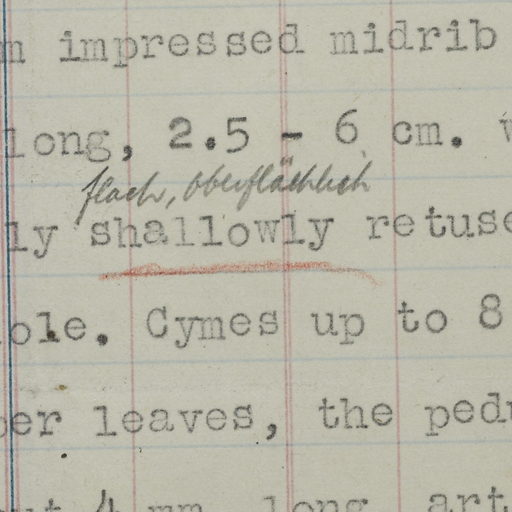 m impressed midrib
long, 2.5 - 6 cm. w
flach, oberflächlich
ly shallowly retuse
ole. Cymes up to 8
per leaves, the pedu
ut 4 mm long, art